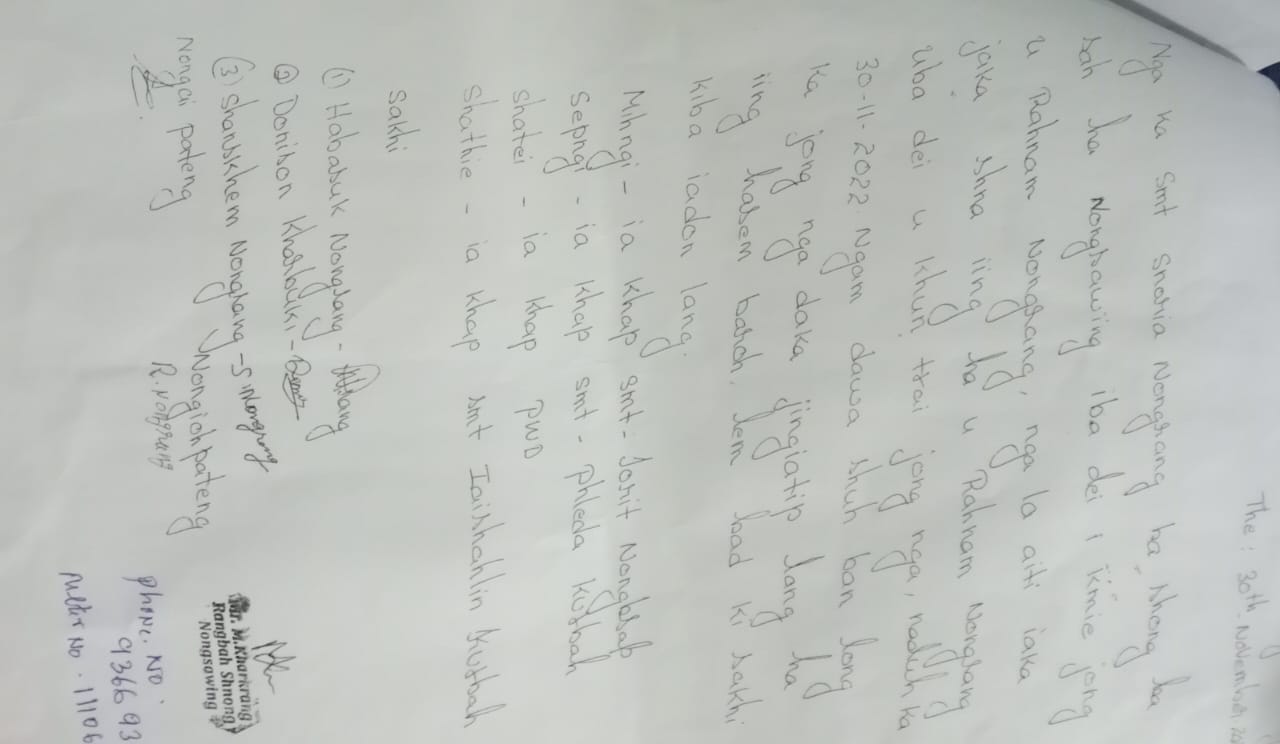 The: 30th. November 20
Nga Ka Smt Snoria Nongrang ba shong ba
sah ha Nongsawiing iba dei i kmie jong
u Rahnam Nongrang, nga la aiti iaka
jaka shna iing ha u Rahnam Nongrang
uba dei u khun trai jong nga, naduh ka
30-11-2022. Ngam dawa shuh ban long
Ka jong nga daka jingiatip lang ha
iing hasem baroh lem bad ki sakhi
kiba iadon lang.
Mihngi - ia khap smt - Josit Nongbsap
Sepngi - ia khap smt - phleda kurbah
shatei - ia khap PWD
shathie - ia khap smt Iaishahlin kurbah
Sakhi
(1) Habasuk Nongrang -
(2) Donison Kharbuki -
(3) Shanskhem Nongrang - S Nongrang
Nongai pateng Nongiohpateng
R. Nongrang
Mr. M.Kharkrang
Rangbah Shnong,
Nongsawing
phone. No.
936693
Meter No. 11106